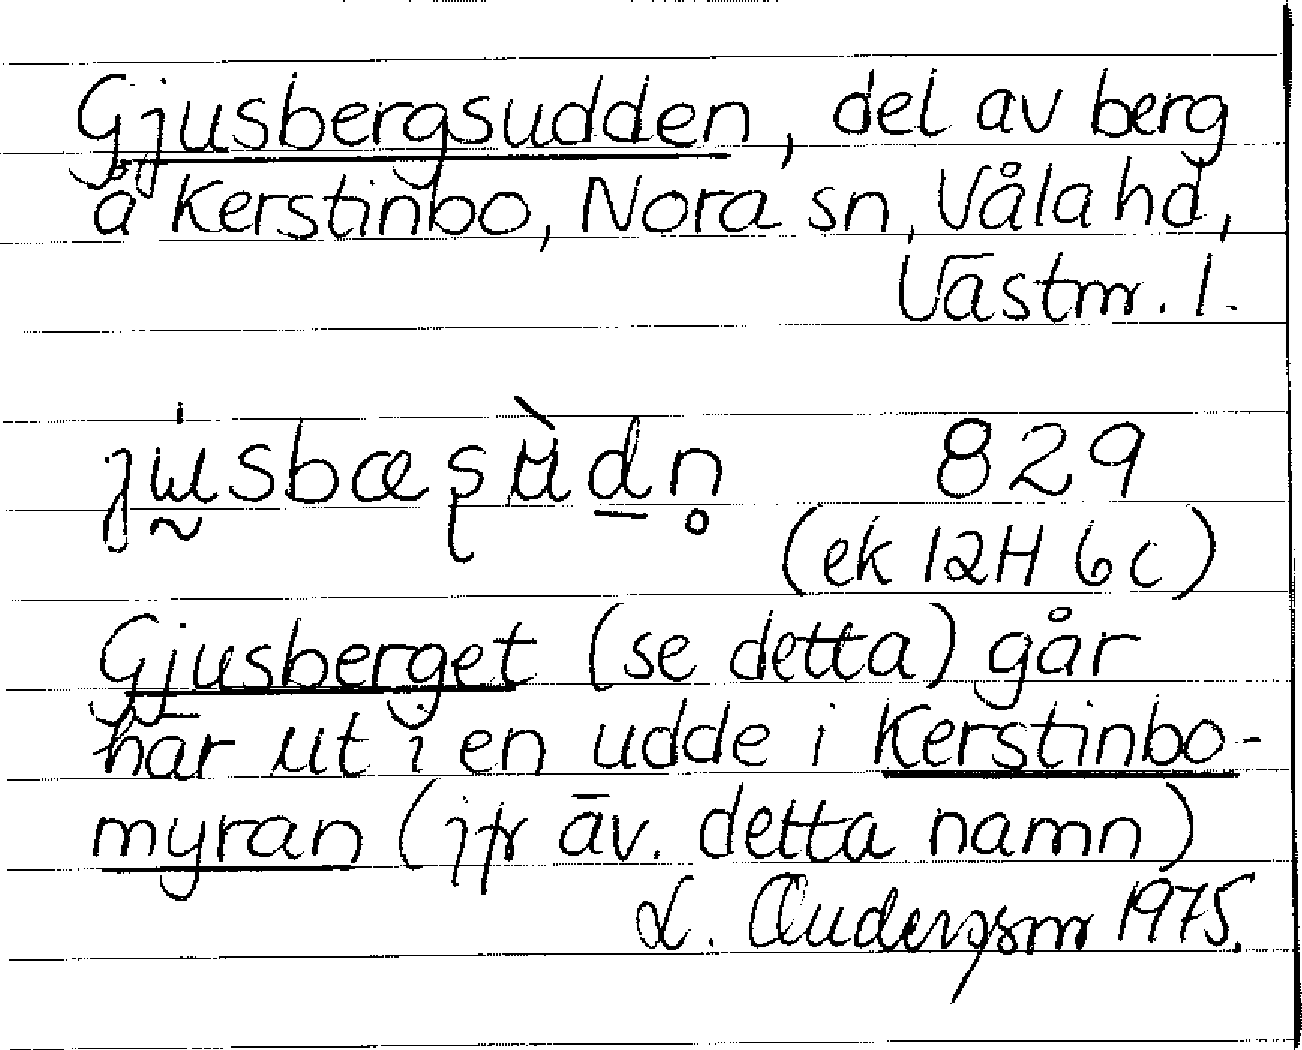 Gjusbergsudden, del av berg
å Kerstinbo, Nora sn, Våla hd,
Västmr. l.
829
(ek 12H 6c)
Gjusberget (se detta) går
här ut i en udde i Kerstinbo-
myran (jfr äv. detta namn)
L. Andersson 1975.